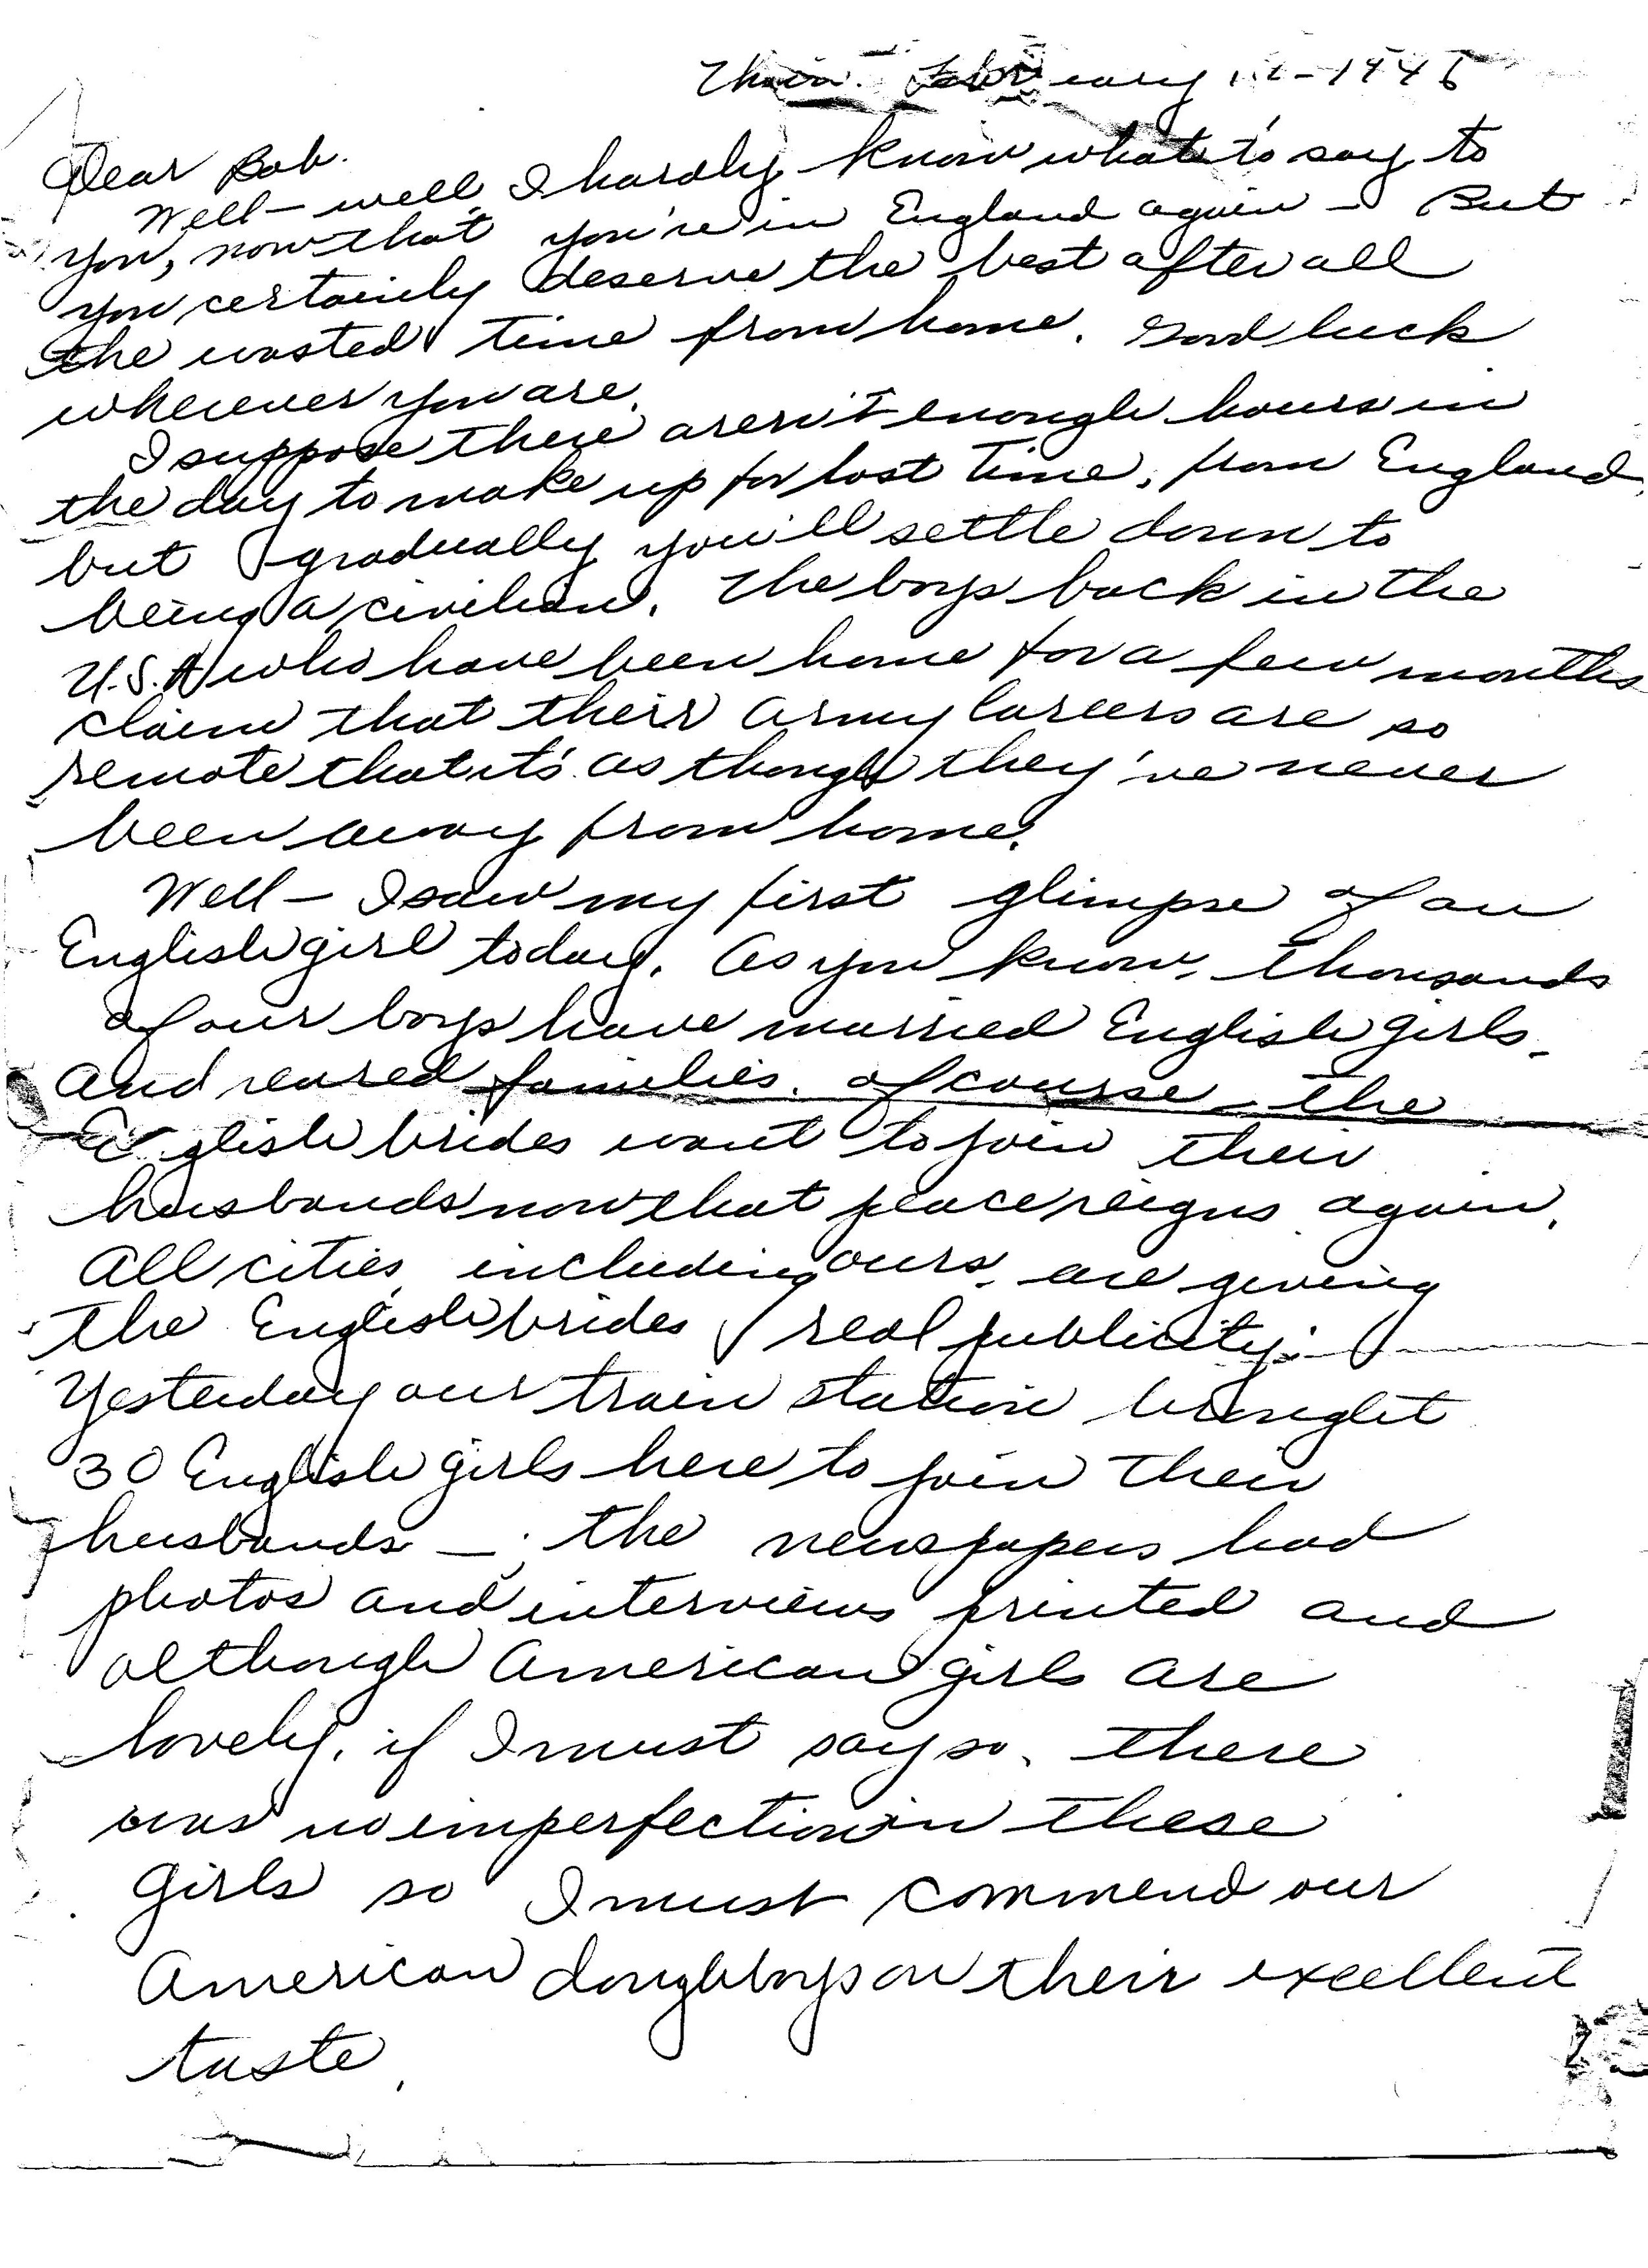 February 1946
Dear Bob.
Well – well, I hardly know what to say to
you, now that you're in England again – But
you certainly deserve the best after all
the wasted time from home. Good luck
wherever you are.
I suppose there aren't enough hours in
the day to make up for lost time, from England,
but gradually you'll settle down to
being a civilian. The boys back in the
U.S.A who have been home for a few months
claim that their army careers are so
remote that it's as though they've never
been away from home.
Well – I saw my first glimpse of an
English girl today. As you know, thousands
of our boys have married English girls,
and reared families. Of course, the
English brides want to join their
husbands now that peace reigns again.
All cities, including ours, are giving
the English brides real publicity.
Yesterday our train station brought
30 English girls here to join their
husbands – the newspapers had
photos and interviews printed and
although American girls are
lovely, if I must say so, there
was no imperfection in these
girls so I must commend our
American doughboys on their excellent
taste.